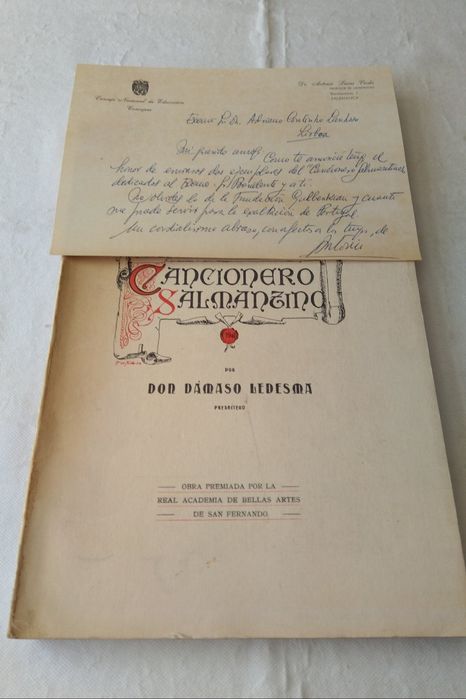 Consejo Nacional de Educación
Consejero
Dr. Antonio
SALAMANCA
Excmo Sr. Dr. Adriano Coutinho Lanhoso
Lisboa
Mi querido amigo: Como te anuncié tengo el
honor de enviaros dos ejemplares del "Cancionero Salmantino"
dedicados al Excmo Sr. Presidente y a ti.
No olvides lo de la Fundación Gulbenkian y cuanto
yo pueda servir para la exaltación de Portugal.
Un cordialísimo abrazo, con afectos a los tuyos, de
Antonio
CANCIONERO
SALMANTINO
POR
DON DÁMASO LEDESMA
PRESBÍTERO
OBRA PREMIADA POR LA
REAL ACADEMIA DE BELLAS ARTES
DE SAN FERNANDO